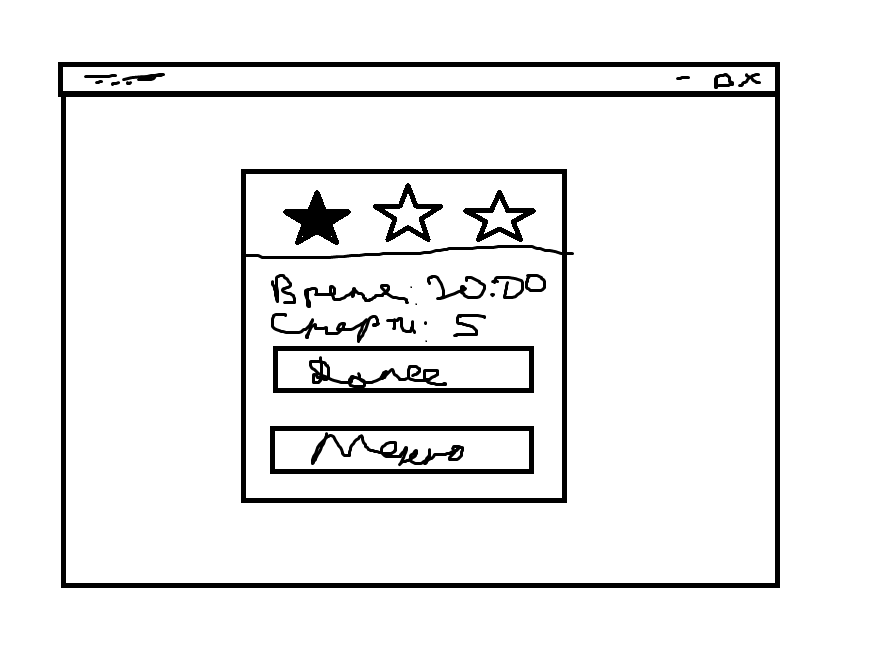 Время: 20:00
Смерти: 5
Далее
Меню